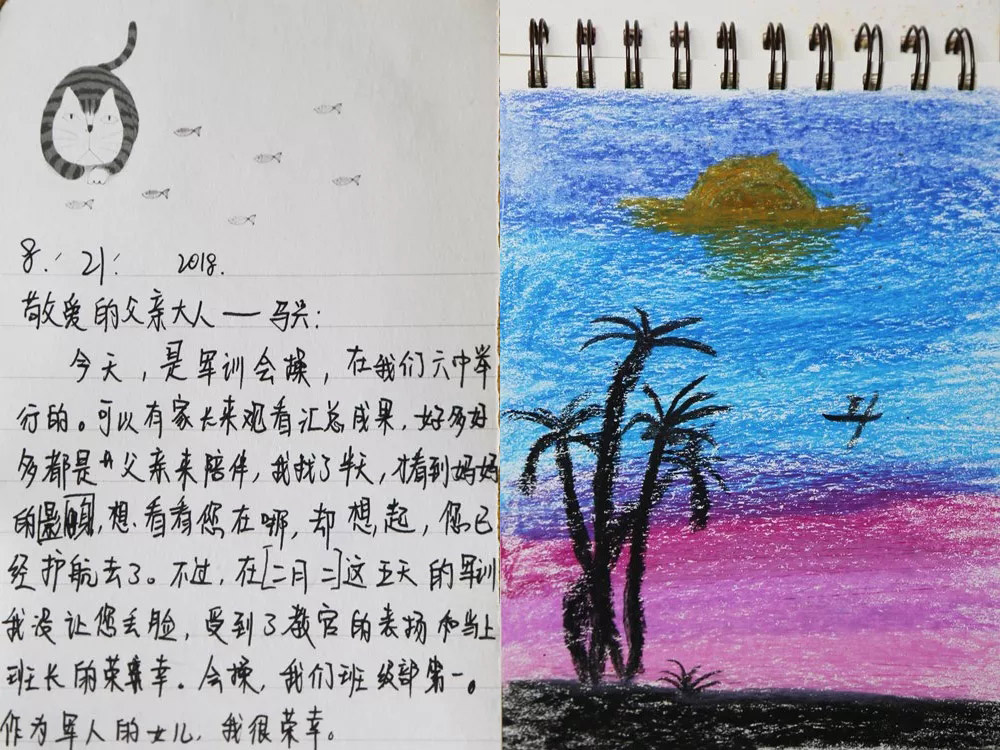 8.' 21' 2018.
敬爱的父亲大人——马兴:
今天,是军训会操,在我们六中举
行的。可以有家长来观看汇总成果,好多好
多都是父亲来陪伴,我找了半天,才看到妈妈
的,想看看您在哪,却想起,您已
经护航去了。不过,在[二月二]这五天的军训
我没让您丢脸,受到了教官的表扬和当上
班长的荣幸。会操,我们班级部第一。
作为军人的女儿,我很荣幸。